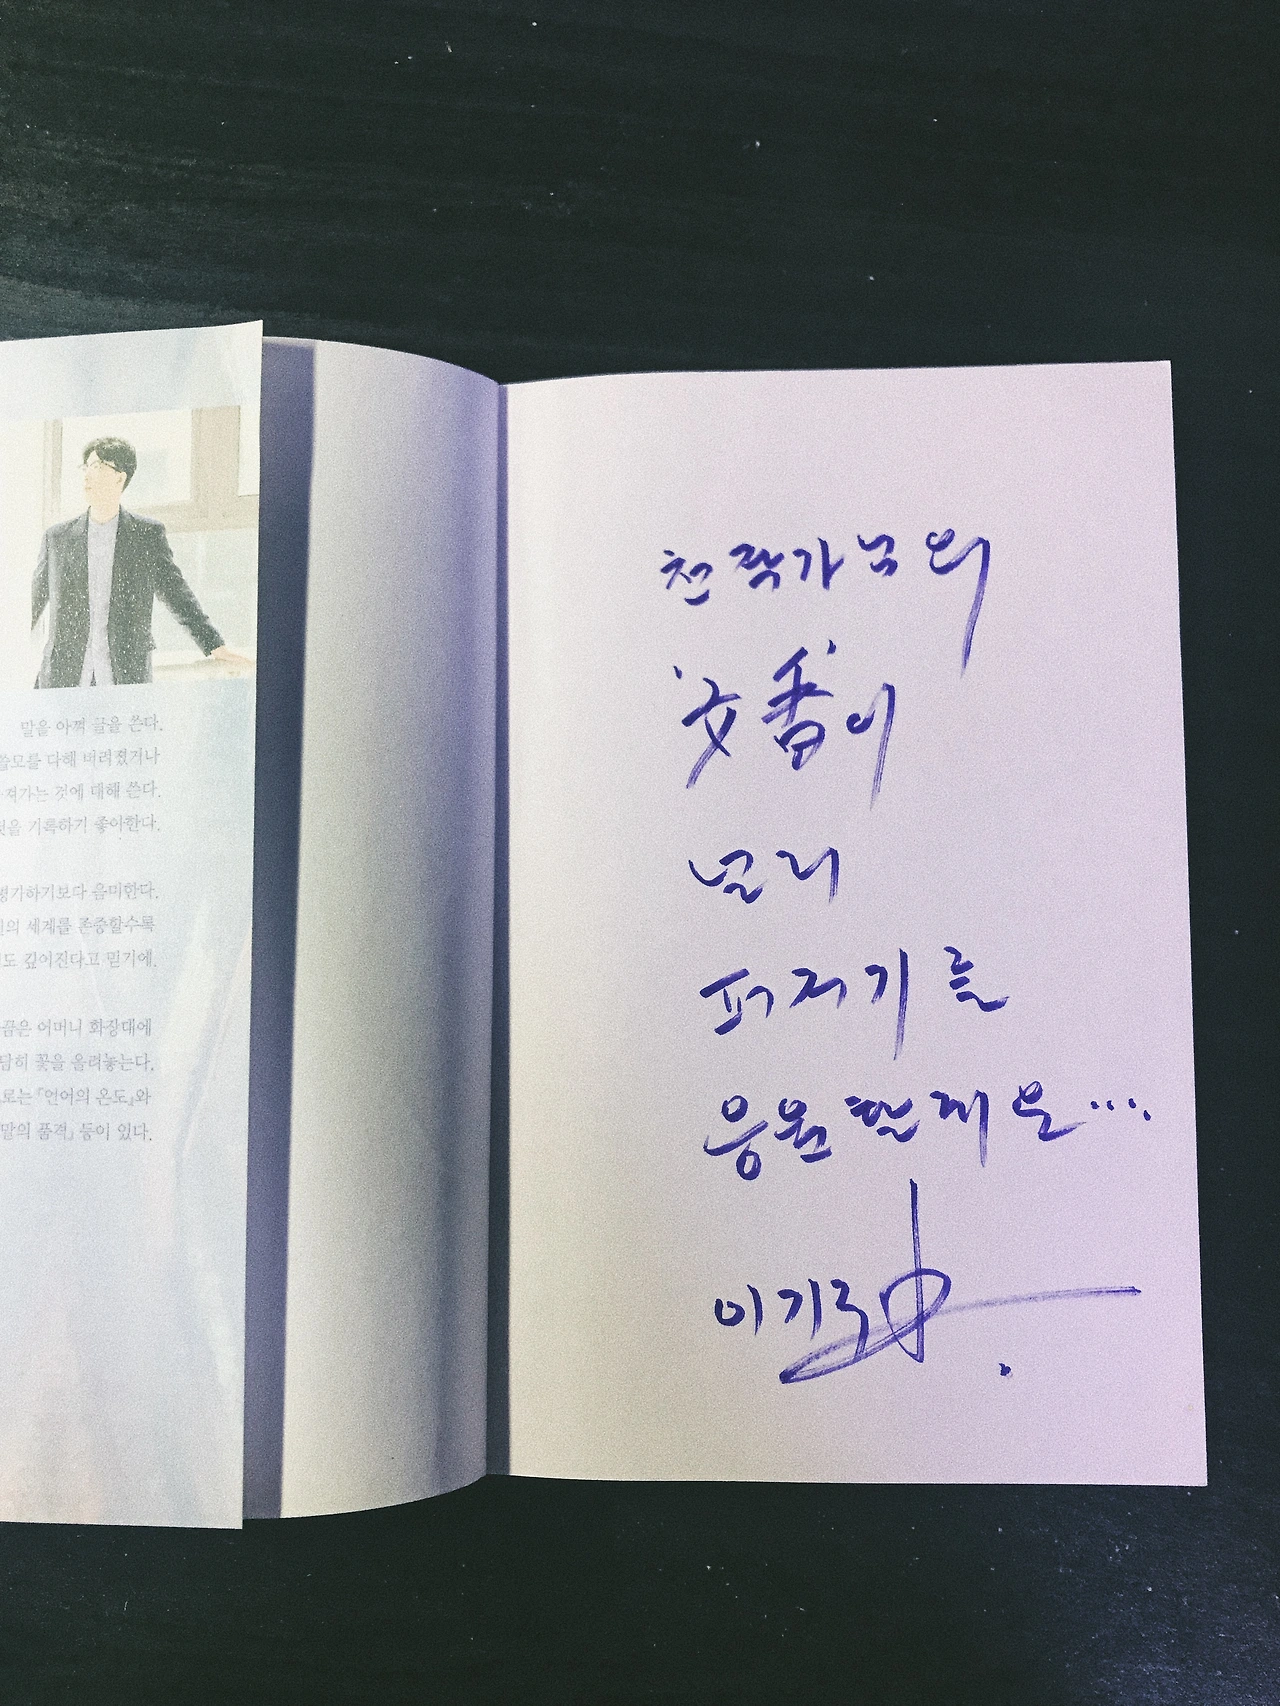 말을 아껴 글을 쓴다.
쓸모를 다해 버려졌거나
져가는 것에 대해 쓴다.
기록하기 좋아한다.
평가하기보다 음미한다.
세계를 존중할수록
깊어진다고 믿기에.
어머니 화장대에
꽃을 올려놓는다.
로는 『언어의 온도』와
말의 품격』 등이 있다.
천 작가님의
文香이
널리
퍼지기를
응원할게요...
이기주.